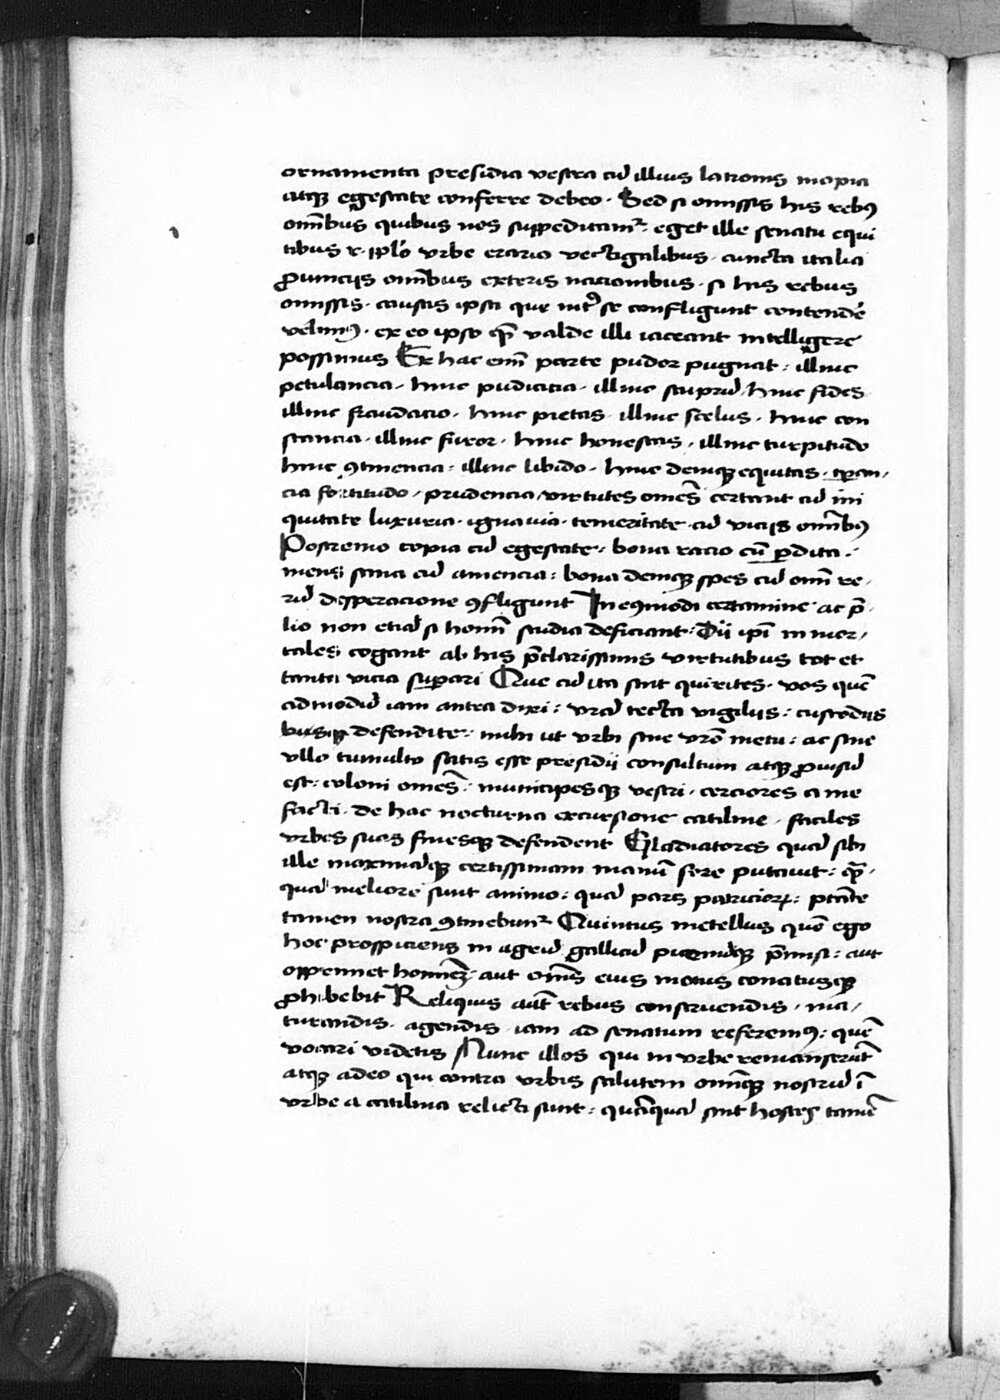 ornamenta presidia vestra cū illius latronis inopia
atqꝫ egestate conferre debeo · Sed si omissis his rebꝰ
om̄ibus quibus nos suppeditamᵘʳ · eget ille senatu equi
tibus r · iplo urbe erario vectigalibus · cuncta italia
ꝓuincijs om̄ibus exteris nacionibus · si his rebus
omissis · causas ipsa que int̓ se confligunt contendē
velimꝰ · ex eo ipso q̄ valde illi iaceant intelligere
possimus Ex hac eni̅ parte pudor pugnat : illinc
petulancia · hinc pudicicia · illinc stuprū · hinc fides
illinc fraudacio · hinc pietas · illinc scelus · hinc con
stancia · illinc furor · hinc honestas · illinc turpitudo
hinc ꝯtinencia : illinc libido · hinc deniqꝫ equitas · tꝑan
cia fortitudo · prudencia virtutes om̄es certant cū ini
quitate luxuria · ignauia · temeritate · cū vicijs om̄ibꝰ
Postremo copia cū egestate : bona racio cū ꝑdita :
mens sana cū amencia : bona deniqꝫ spes cū om̄i re
rū desperacione ꝯfligunt In eiꝰmodi certamine ac p̄
lio non etiā si homi̅ studia deficiant : Dij ip̄i inmor
tales cogant ab his p̄clarissimis virtutibus tot et
tanta vicia suꝑari Que cū ita sint quirites · vos quē
admodū iam antea dixi : vr̄a tecta vigilijs : custodijs
busqꝫ defendite : mihi ut urbi sine vr̄o metu : ac sine
ullo tumulto satis esse presidii consultum atqꝫ ꝓuisū
est : coloni om̄es · municipesqꝫ vestri · cerciores a me
facti · de hac nocturna excursione catiline · faciles
urbes suas finesqꝫ defendent Gladiatores quā sibi
ille maximāqꝫ certissimam manū fore putauit : q̄
quā meliore sunt animo : quā pars patricioꝝ : ptāte
tamen nostra ꝯtinebunᵘʳ Quintus metellus quē ego
hoc prospiciens in agrū gallicū picenūqꝫ p̄misi : aut
opprimet hominē · aut om̄is eius motus conatusqꝫ
ꝓhibebit Reliquis aūt rebus constituendis · ma
turandis · agendis · iam ad senatum referemꝰ : quē
vocari videtis Nunc illos qui in urbe remanserūt
atqꝫ adeo qui contra urbis salutem om̄iqꝫ nostrū ī
urbe a catilina relicti sunt : quāquā sint hostes tamē